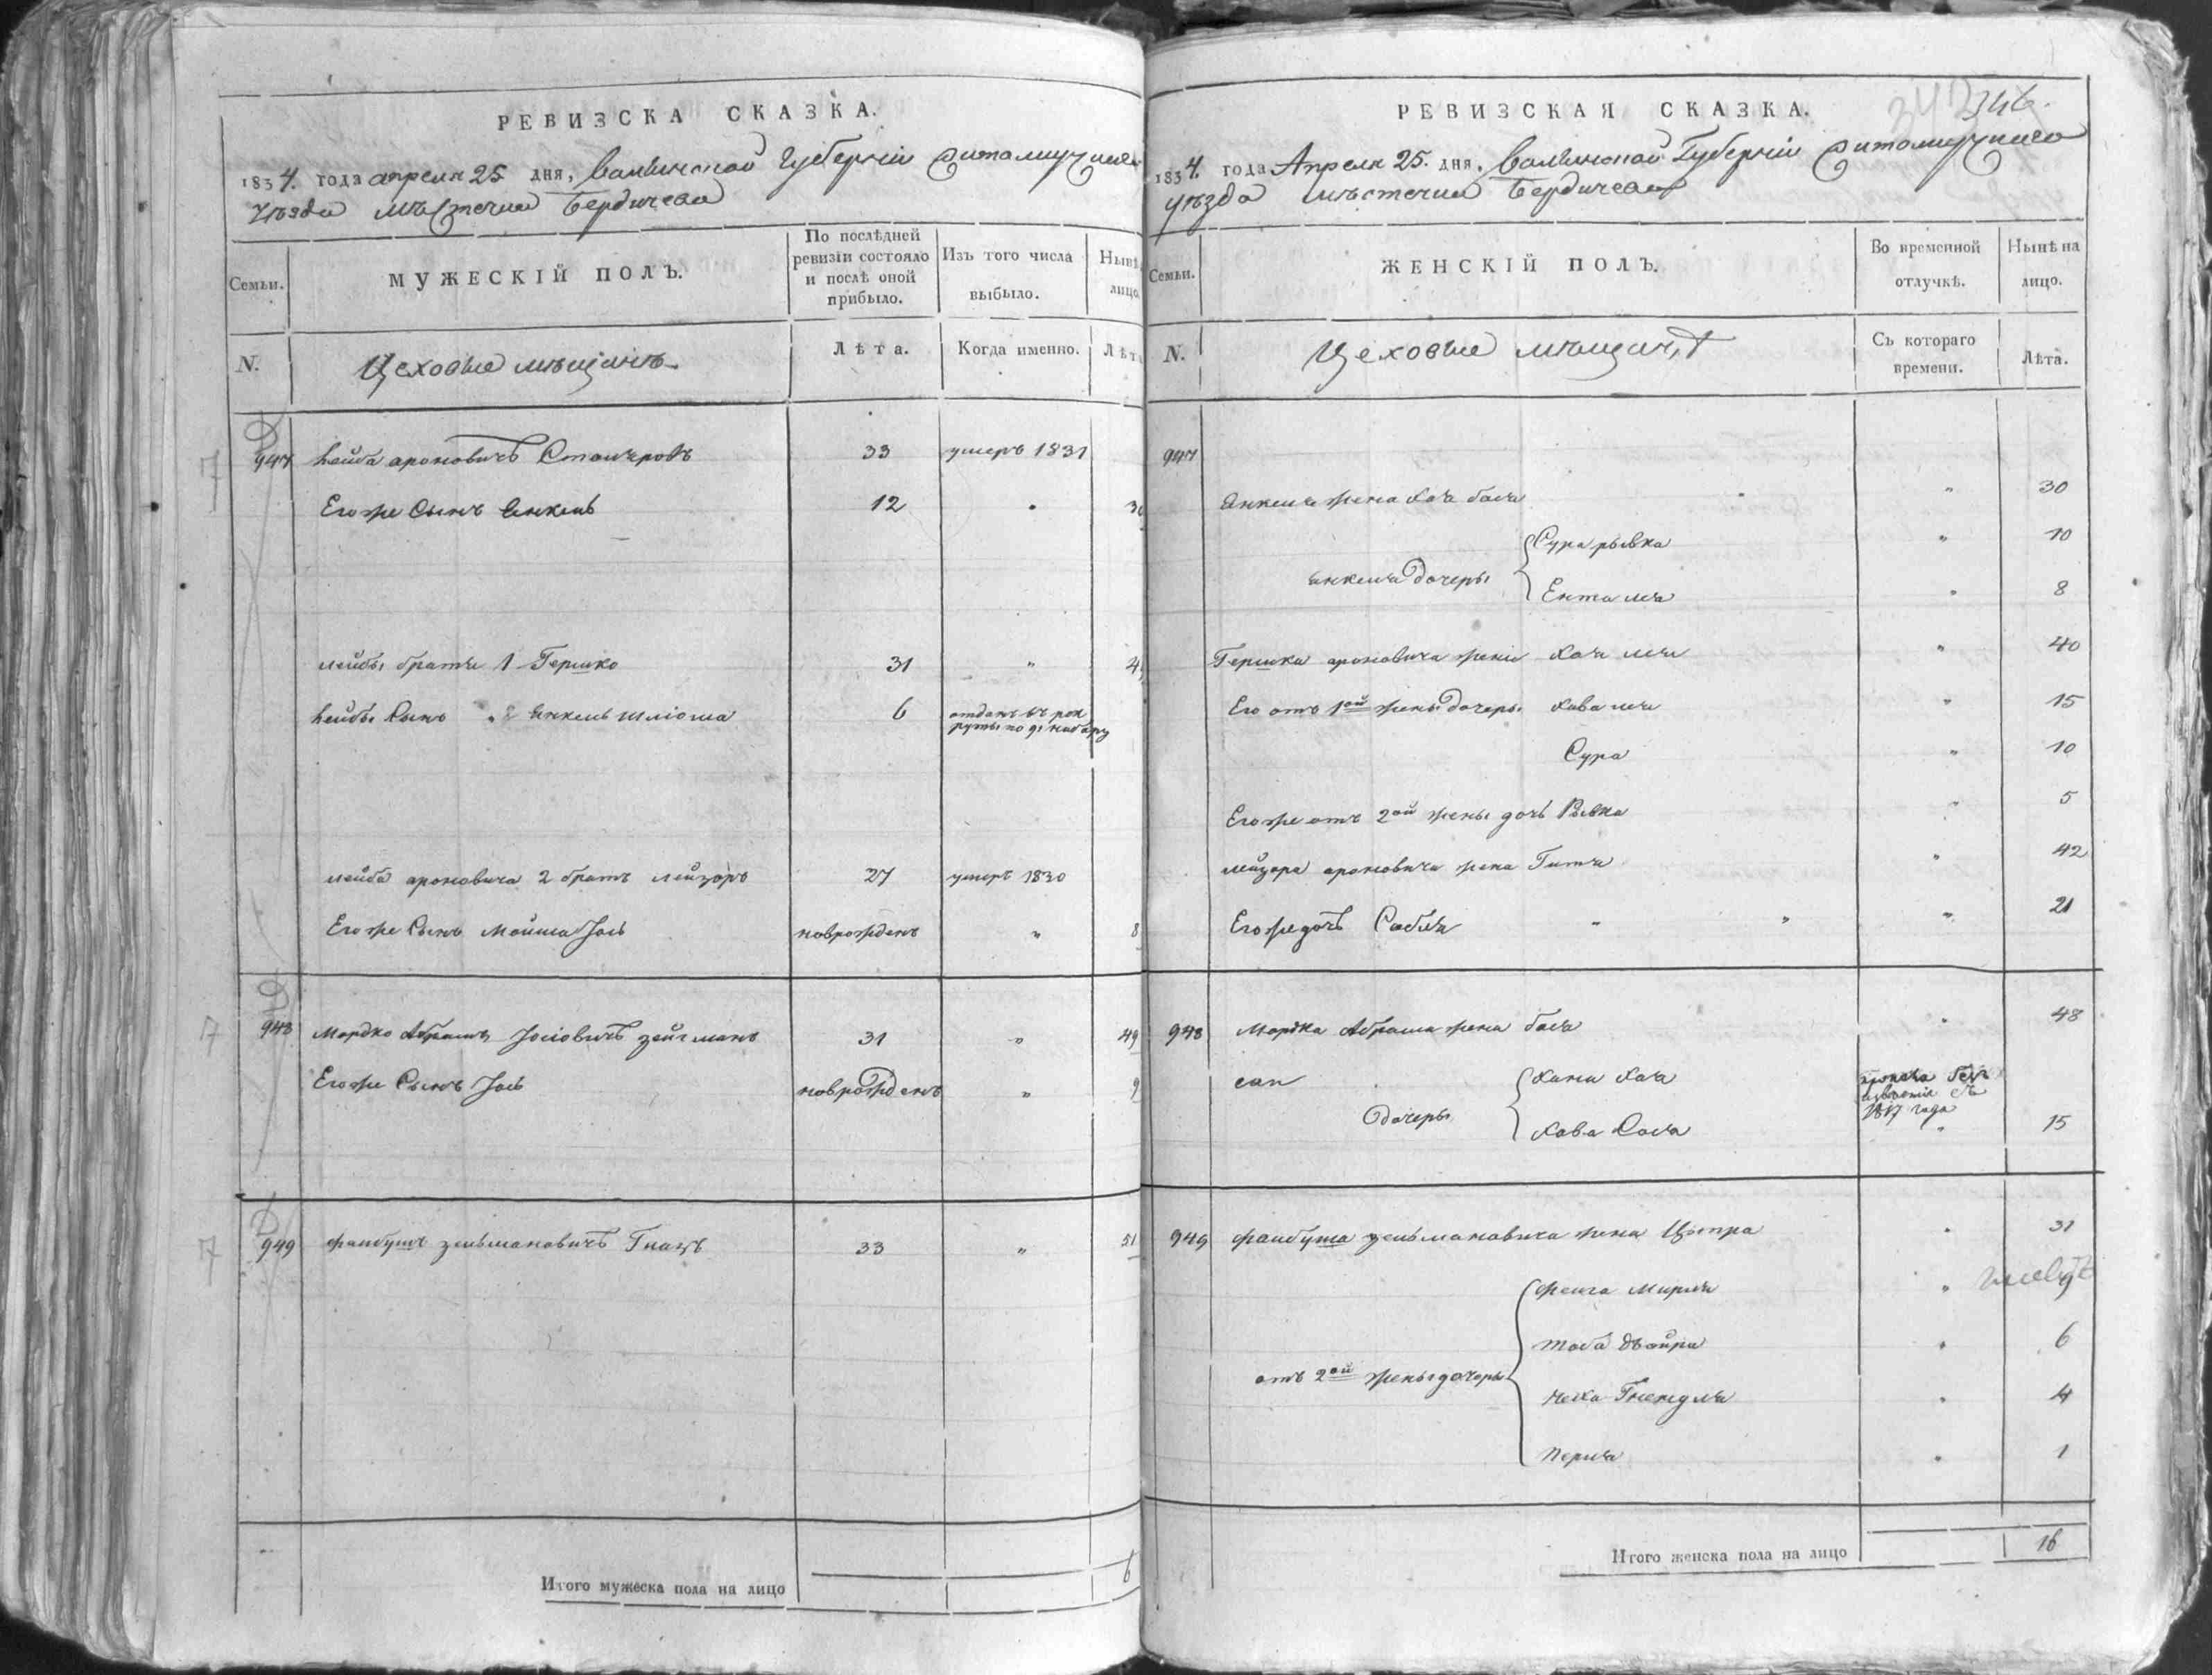 РЕВИЗСКА СКАЗКА.
1834. года апреля 25 дня, Волынской Губерніи Житомирского
Уѣзда мѣстечка Бердичева
Семьи.
МУЖЕСКІЙ ПОЛЪ.
По послѣдней ревизіи состояло и послѣ оной прибыло.
Изъ того числа выбыло.
Нынѣ лицо.
N.
Цеховые мѣщанъ
Лѣта.
Когда именно.
Лѣт
947 Лейба ароновичъ 33 умеръ 1831
Егоже Сынъ Янкель 12 30
лейбы братья 1 Гершко 31 " 4
Лейбы Сынъ " 2 Янкель шлiома 6 отданъ въ рек
руты по 91 набору
лейба ароновича 2 братъ лейзоръ 27 умеръ 1830
Егоже Сынъ Мойша Іось новрожденъ " 8
948 Мордко Абрамъ Іосіовичъ зейгманъ 31 " 49
Егоже Сынъ Іось новрожденъ " 9
949 фаибушъ зельмановичъ 33 " 51
Итого мужеска пола на лицо 6
РЕВИЗСКАЯ СКАЗКА.
342 346.
1834. года Апреля 25. дня, Волынской Губерніи Житомирского
уѣзда мѣстечка Бердичева
Семьи.
ЖЕНСКІЙ ПОЛЪ.
Во временной отлучкѣ.
Нынѣ на лицо.
N.
Цеховые мѣщанъ
Съ котораго времени.
Лѣта.
947
Янкеля жена Хая бася " 30
Сура рывка " 10
янкеля дочеры
Ента лея " 8
Гершка ароновича жена Хая лея " 40
Его отъ 1ой жены дочеры Хава лея " 15
Сура " 10
Егоже отъ 2ой жены дочь Рывка " 5
лейзора ароновича жена Гитя " 42
Егоже дочь " " " 21
948 Мордка Абрама жена бася " 48
его
Хана Хая
безъ извѣстія съ 1817 года
дочеры
Хава Сося " 15
949 фаибуша зельмановича жена Цыпра " 31
Фейга Мирля " 9
Тоба Двойра " 6
отъ 2ой жены дочеры
Неха Гнендля " 4
Перля " 1
Итого женска пола на лицо 16